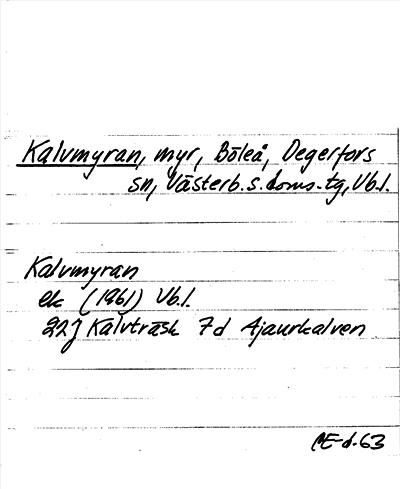 Kalvmyran, myr, Böleå, Degerfors
sn, Västerb. s. doms. tg, Vb.l.
Kalvmyran
ek (1961) Vb.l.
22J Kalvträsk 7d Ajaurkalven
CE-d. 63